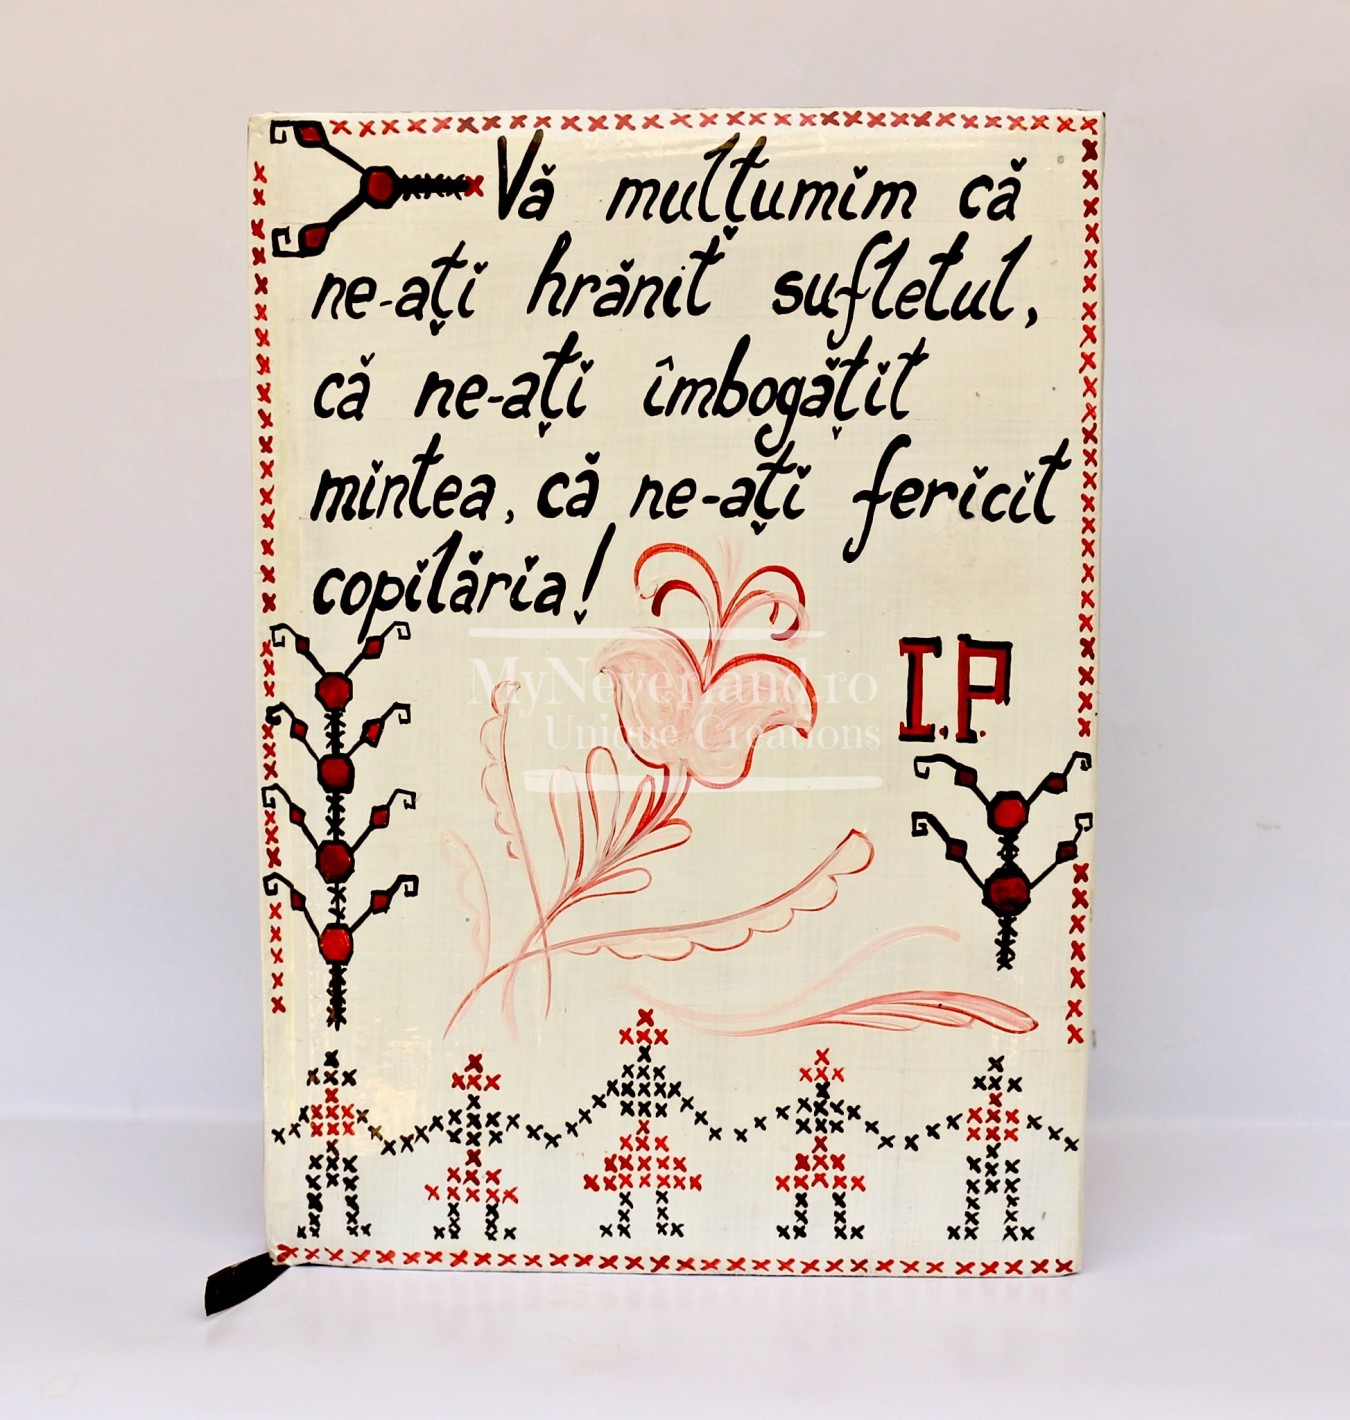 Vă mulțumim că
ne-ați hrănit sufletul,
că ne-ați îmbogățit
mintea, că ne-ați fericit
copilăria!
MyNeverland.ro
Unique Creations
I.P.